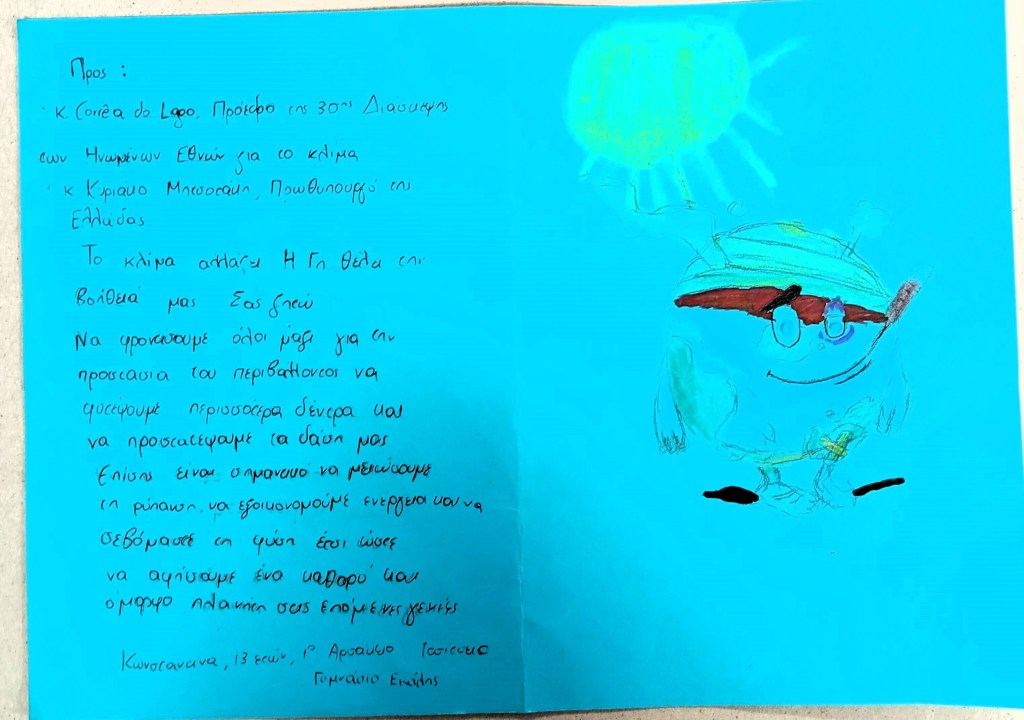 Προς :
· κ. Corrêa do Lago, Πρόεδρο της 30ης Διάσκεψης
των Ηνωμένων Εθνών για το κλίμα
· κ Κυριάκο Μητσοτάκη, Πρωθυπουργό της
Ελλάδας
Το κλίμα αλλάζει Η Γη θέλει την
βοήθειά μας Σας ζητώ
Να φροντίσουμε όλοι μαζί για την
προστασία του περιβάλλοντος να
φυτέψουμε περισσότερα δέντρα και
να προστατέψουμε τα δάση μας
Επίσης είναι σημαντικό να μειώσουμε
τη ρύπανση, να εξοικονομούμε ενέργεια και να
σεβόμαστε τη φύση έτσι ώστε
να αφήσουμε ένα καθαρό και
όμορφο πλανήτη στις επόμενες γενιές
Κωνσταντίνα, 13 ετών, 1ο Αρσάκειο Τοσίτσειο
Γυμνάσιο Εκάλης